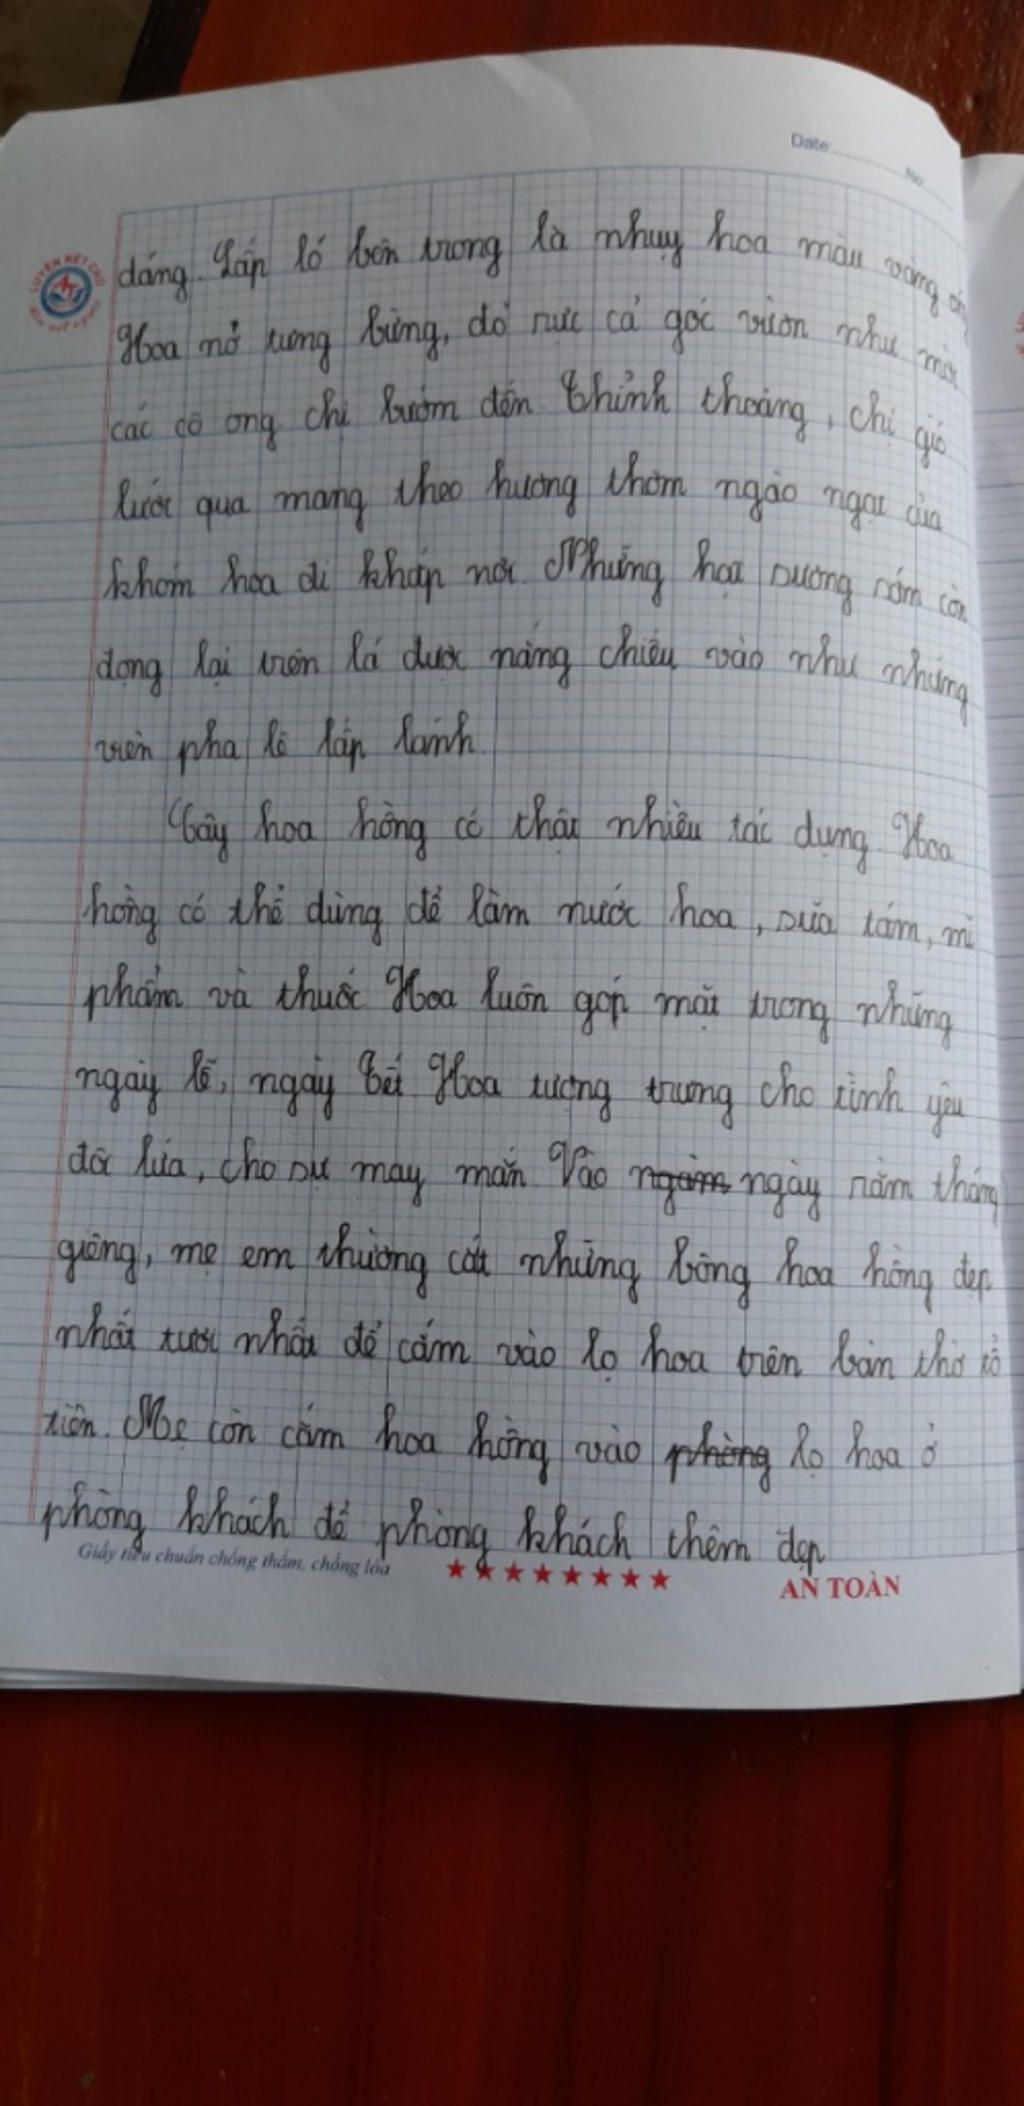 Date: No
LUYỆN NÉT CHỮ
dáng. Lấp ló bên trong là nhuỵ hoa màu vàng
Hoa nở tưng bừng, đỏ rực cả góc vườn như mời
các cô ong chị bướm đến Thỉnh thoảng, chị gió
lướt qua mang theo hương thơm ngào ngạt của
khóm hoa đi khắp nơi Những hạt sương sớm còn
đọng lại trên lá được nắng chiếu vào như những
viên pha lê lấp lánh
Cây hoa hồng có thật nhiều tác dụng. Hoa
hồng có thể dùng để làm nước hoa, sữa tắm, mĩ
phẩm và thuốc Hoa luôn góp mặt trong những
ngày lễ, ngày Tết Hoa tượng trưng cho tình yêu
đôi lứa, cho sự may mắn Vào ngàm ngày rằm tháng
giêng, mẹ em thường cắt những bông hoa hồng đẹp
nhất tươi nhất để cắm vào lọ hoa trên bàn thờ tổ
tiên. Mẹ còn cắm hoa hồng vào phòng lọ hoa ở
phòng khách để phòng khách thêm đẹp
Giấy tiêu chuẩn chống thấm, chống lóa
AN TOÀN